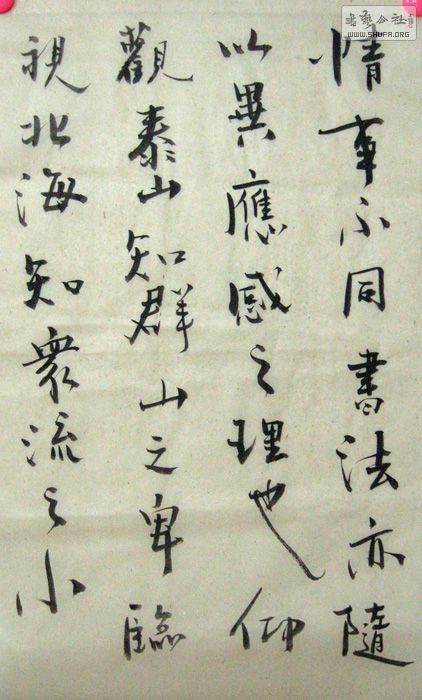 書藝公社
WWW.SHUFA.ORG
情事不同書法亦隨
以異應感之理也仰
觀泰山知群山之卑臨
視北海知衆流之小